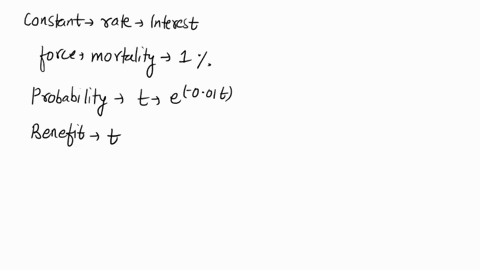 Constant → rate → Interest
force → mortality → 1 %.
Probability → t → e^(-0.01t)
Benefit → t